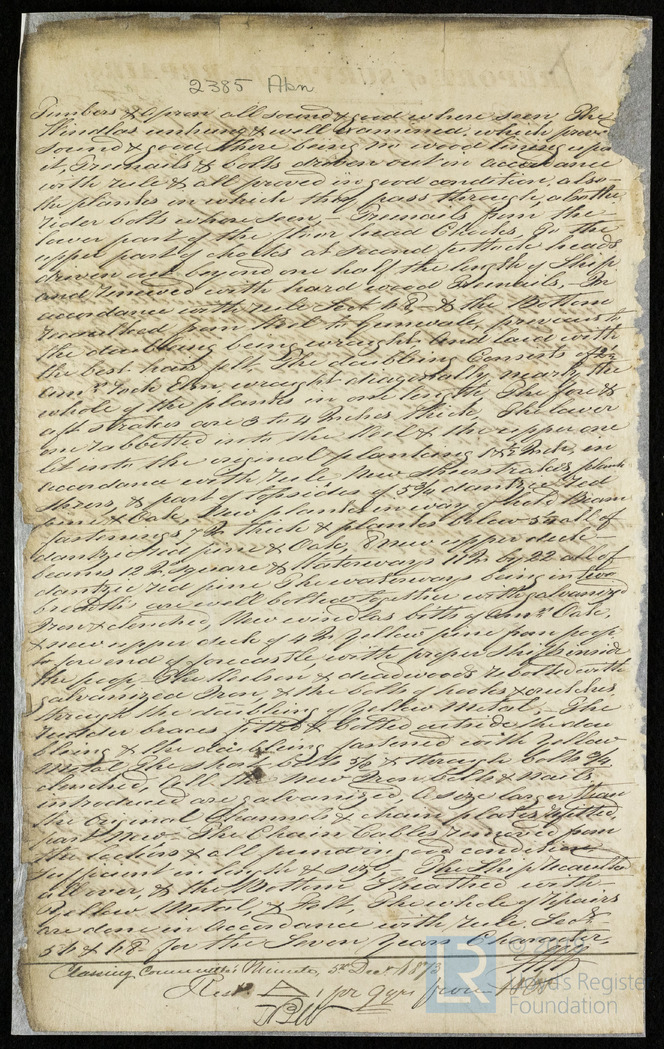 2385 Abn
Timbers & Apron all sound & good where seen, The
Windlas unhung & well examined, which prove
sound & good, there being no wood lining upon
it, Treenails & bolts driven out in accordance
with rule & all proved in good condition, also
the planks in which they pass through, also the
rider bolts where seen - Treenails from the
lower part of the floor head Checks to the
upper part of checks at second futtock heads
driven out beyond one half the length of Ship
and renewed with hard wood Treenails, - In
accordance with rule Sect 48 & the Bottom
recaulked from Keel to Gunwale, previous to
the doubling being wrought and laid with
the best hair felt. The doubling Consists of 2½
Amn Rock Elm wrought diagonally nearly the
whole of the planks in one length, The fore &
aft strakes are 3 to 4 Inches thick, The lower
one rabbetted into the Keel & the upper one
let into the original planking Inch, in
accordance with rule, New Sheerstrakes plank
sheers, & part of topsides of 5¾ dantzic Red
pine & Oak, New planks in way of hold Beam
fastenings 7 In thick & planks below small of
dantzic Red pine & Oak, New upper deck
beams 12 In Square & Waterways 11 In by 22 all of
dantzic red pine The waterways being in two
breadths are well bolted together with galvanized
Iron & clenched, New windlas bitts of Amn Oak,
& new upper deck of 4 In Yellow pine from poop
to fore end of forecastle, with proper shifts inside
the poop - The Keelson & deadwoods rebolted with
galvanized Iron, & the bolts of hooks & crutches
through the doubling of Yellow Metal, - The
rudder braces fitted & bolted outside the dou
bling & the doubling fastened with Yellow
Metal The short bolts 5/8 & through bolts 3/4
clenched, All the New Iron bolts & nails
introduced are galvanized, a size larger than
the Original Channels & chain plates refitted
part New - The Chain Cables removed from
the lockers & all found in good condition
sufficient in length & size, The Ship recaulked
all over, & the Bottom Sheathed with
Yellow Metal, & Felt, The whole of repairs
are done in accordance with rule Sect
56 & 48 for the Seven Years Character,
Classing Committee's Minute, 5th Decr 1873
for 9 yrs from
© 2020
LR
Lloyd's Register
Foundation